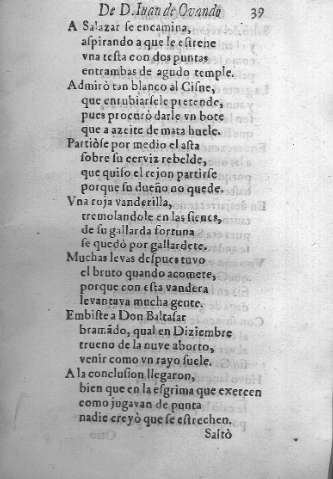 De D. Iuan de Ovando 39
A Salazar se encamina,
aspirando a que le estrene
vna testa con dos puntas
entrambas de agudo temple.
Admirò tan blanco al Cisne,
que enrubiarsele pretende,
pues procurò darle vn bote
que a azeite de mata huele.
Partiòse por medio el asta
sobre su cerviz rebelde,
que quiso el rejon partirse
porque su dueño no quede.
Vna roja vanderilla,
tremolandole en las sienes,
de su gallarda fortuna
se quedò por gallardete.
Muchas levas despues tuvo
el bruto quando acomete,
porque con esta vandera
levantava mucha gente.
Embiste a Don Baltasar
bramãdo, qual en Diziembre
trueno de la nuve aborto,
venir como vn rayo suele.
A la conclusion llegaron,
bien que en la esgrima que exercen
como jugavan de punta
nadie creyò que se estrechen.
Saltò